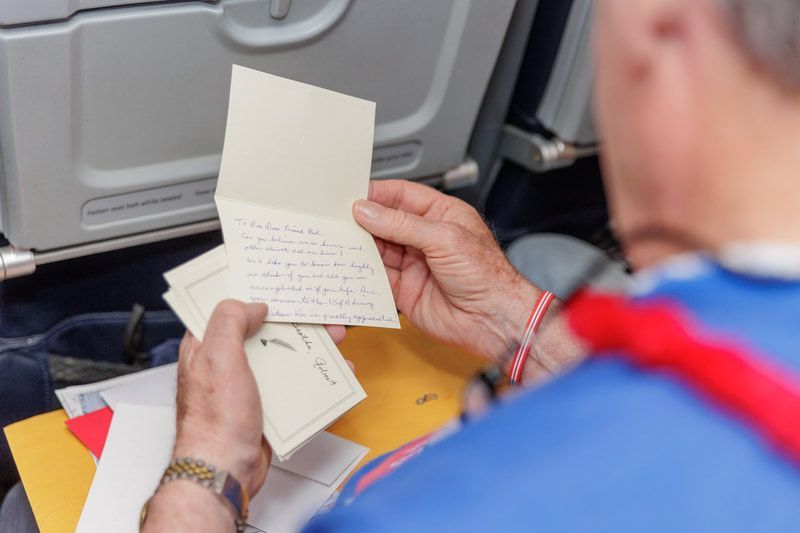 Fasten seat belt while seated
To Our Dear Friend Bob,
Can you believe we've known each
other almost all our lives?
We'd like to know how highly
we think of you and all you've
accomplished in your life. And,
your service to the USofA during
War is greatly appreciated.
Robert